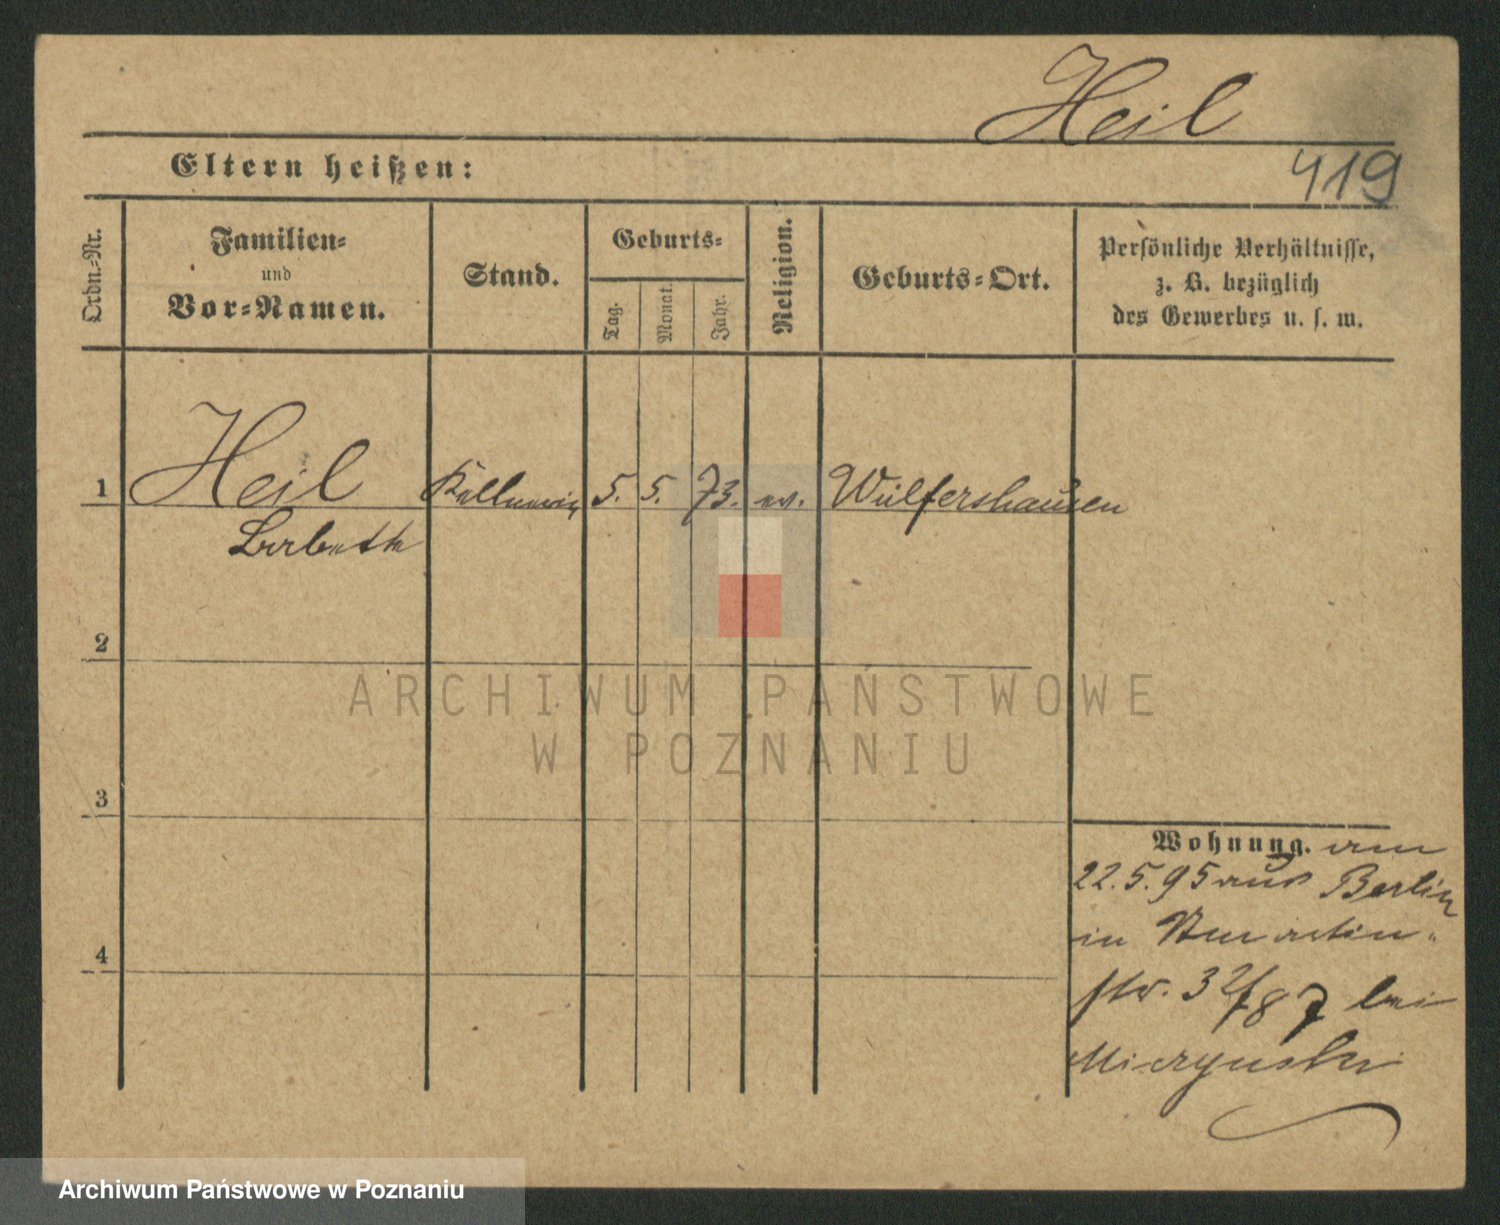 Heil
419
Eltern heißen:
Ordn.-Nr.
Familien-
und
Vor-Namen.
Stand.
Geburts-
Tag.
Monat.
Jahr.
Religion.
Geburts-Ort.
Persönliche Verhältnisse,
z. B. bezüglich
des Gewerbes u. s. w.
1 Heil Kellnerin 5. 5. 73. ev. Wülfershausen
Barbette
2
3
4
Wohnung. am
22.5.95 aus Berlin
in
str. 32/ 87 bei
ARCHIWUM PAŃSTWOWE
W POZNANIU
Archiwum Państwowe w Poznaniu